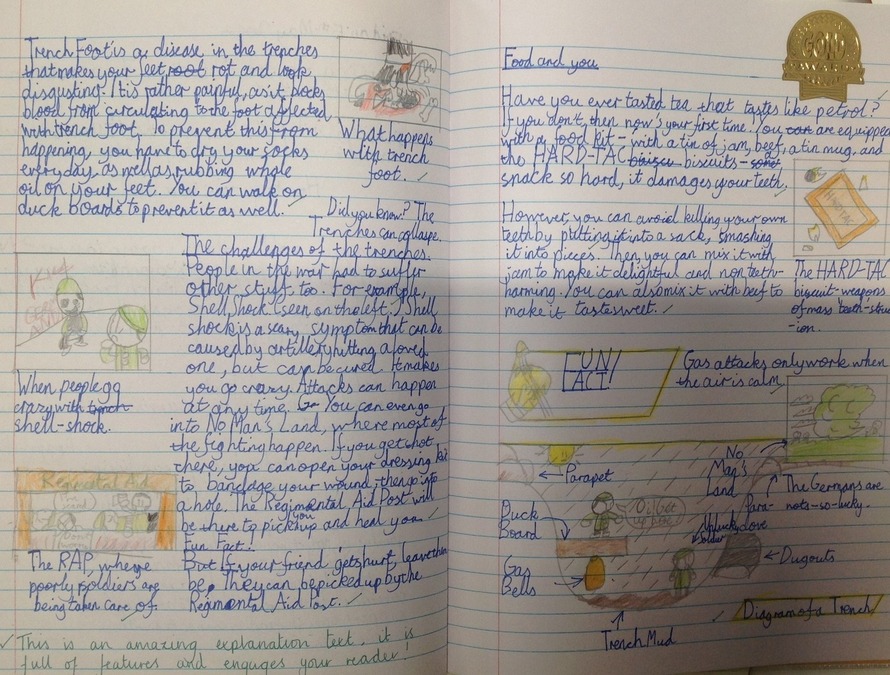 Trench Foot is a disease in the trenches
that makes your feet root rot and look
disgusting. It is rather painful, as it blocks
blood from circulating to the foot affected
with trench foot. To prevent this from
happening, you have to dry your socks
everyday as well as rubbing whale
oil on your feet. You can walk on
duck boards to prevent it as well.
What happens
with trench
foot.
Did you know? The
Trenches can collapse.
The challenges of the trenches.
People in the war had to suffer
other stuff too. For example,
Shell shock (seen on the left). Shell
shock is a scary symptom that can be
caused by artillery hitting a loved
one, but can be cured. It makes
you go crazy. Attacks can happen
at any time. You can even go
into No Man's Land, where most of
the fighting happen. If you get shot
there, you can open your dressing kit
to bandage your wound, then go into
a hole. The Regimental Aid Post will
be there to pick you up and heal you.
Fun Fact:
But if your friend gets hurt, leave them
be. They can be picked up by the
Regimental Aid Post.
When people go
crazy with trench
shell-shock.
Regimental Aid
The RAP, where
poorly soldiers are
being taken care of.
This is an amazing explanation text, it is
full of features and engages your reader!
GOLD
AWARD
Food and you
Have you ever tasted tea that tastes like petrol?
If you don't, then now's your first time. You can are equipped
with a food kit - with a tin of jam, beef, a tin mug, and
the HARD-TAC biscuits - a
snack so hard, it damages your teeth.
However you can avoid killing your own
teeth by putting it into a sack, smashing
it into pieces. Then, you can mix it with
jam to make it delightful and non teeth-
harming. You can also mix it with beef to
make it taste sweet.
The HARD-TAC
biscuit - weapons
of mass teeth-struc
-ion.
FUN
FACT!
Gas attacks only work when
the air is calm
Parapet
No
Man's
Land
Para-
The Germans are
nots-so-lucky.
Duck
Board
Oi! Get
up here!
Unlucky
soldier
Dugouts
Gas
Bells
Trench Mud
Diagram of a Trench